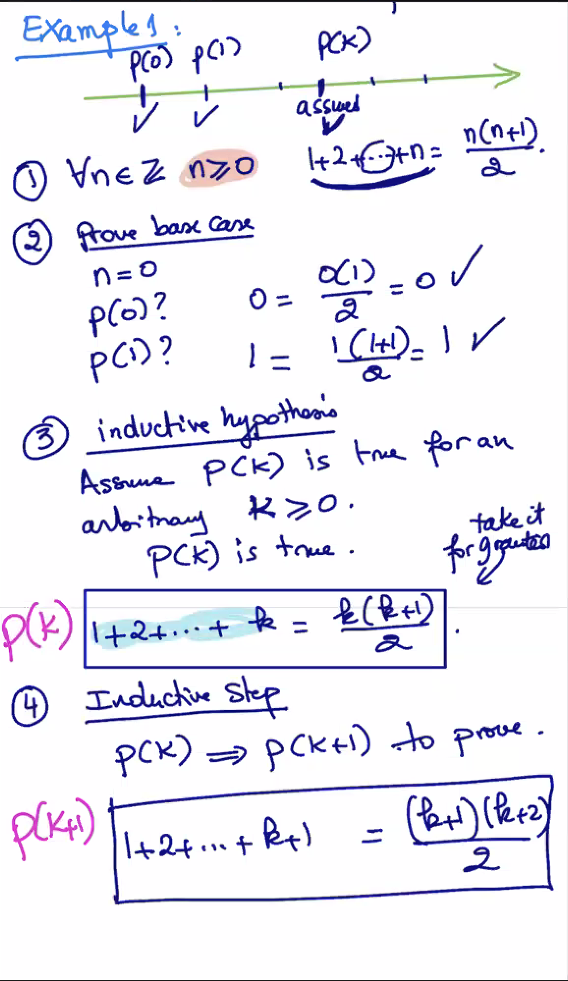 Example 1:
P(0) P(1) P(K)
assumed
① ∀n∈ℤ n≥0 1+2+...+n = n(n+1)/2.
② Prove base case
n=0
P(0)? 0 = 0(1)/2 = 0 ✓
P(1)? 1 = 1(1+1)/2 = 1 ✓
③ inductive hypothesis
Assume P(K) is true for an
arbitrary K≥0.
P(K) is true.
take it
for granted
P(K) 1+2+...+k = k(k+1)/2.
④ Inductive Step
P(K) ⟹ P(K+1) to prove.
P(K+1) 1+2+...+k+1 = (k+1)(k+2)/2